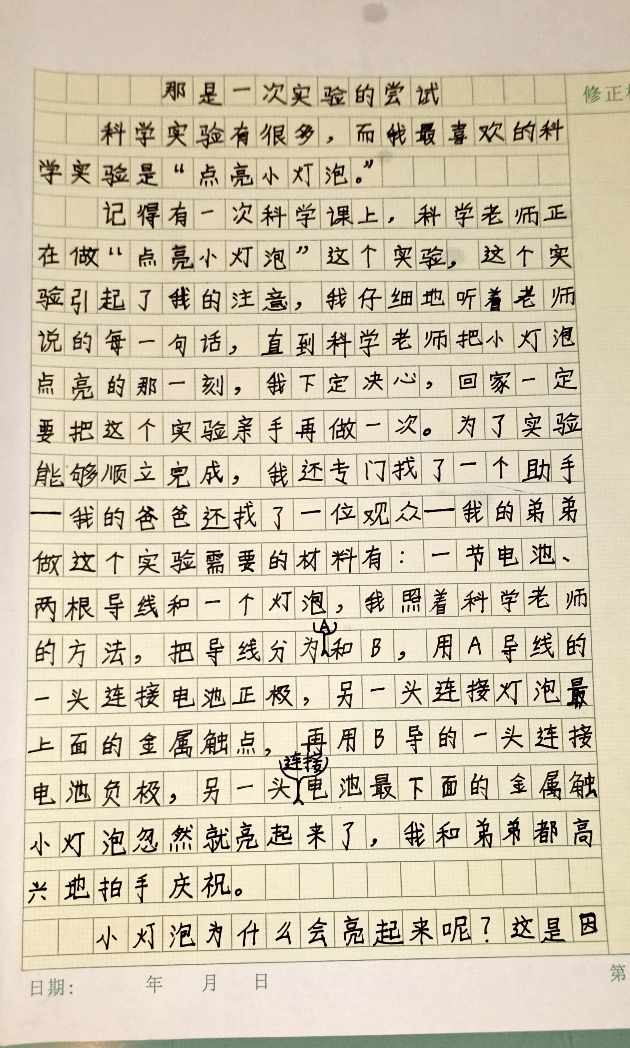 那是一次实验的尝试
修正
科学实验有很多，而我最喜欢的科
学实验是“点亮小灯泡。”
记得有一次科学课上，科学老师正
在做“点亮小灯泡”这个实验，这个实
验引起了我的注意，我仔细地听着老师
说的每一句话，直到科学老师把小灯泡
点亮的那一刻，我下定决心，回家一定
要把这个实验亲手再做一次。为了实验
能够顺立完成，我还专门找了一个助手
——我的爸爸还找了一位观众—我的弟弟
做这个实验需要的材料有：一节电池、
两根导线和一个灯泡，我照着科学老师
的方法，把导线分为A和B，用A导线的
一头连接电池正极，另一头连接灯泡最
上面的金属触点，再用B导的一头连接
电池负极，另一头连接电池最下面的金属触
小灯泡忽然就亮起来了，我和弟弟都高
兴地拍手庆祝。
小灯泡为什么会亮起来呢？这是因
日期： 年 月 日
第